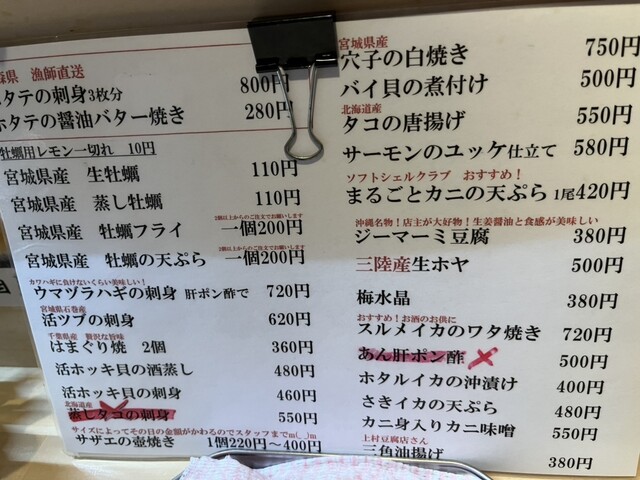 森県 漁師直送
タテの刺身3枚分 800円
ホタテの醤油バター焼き 280円
牡蠣用レモン一切れ 10円
宮城県産 生牡蠣 110円
宮城県産 蒸し牡蠣 110円
2個以上からのご注文でお願いします
宮城県産 牡蠣フライ 一個200円
2個以上からのご注文でお願いします
宮城県産 牡蠣の天ぷら 一個200円
カワハギに負けないくらい美味しい!
ウマヅラハギの刺身 肝ポン酢で 720円
宮城県石巻産
活ツブの刺身 620円
千葉県産 贅沢な旨味
はまぐり焼 2個 360円
活ホッキ貝の酒蒸し 480円
活ホッキ貝の刺身 460円
北海道産
蒸しタコの刺身 550円
サイズによってその日の金額がかわるのでスタッフまでm(_ _)m
サザエの壺焼き 1個220円〜400円
宮城県産
穴子の白焼き 750円
バイ貝の煮付け 500円
北海道産
タコの唐揚げ 550円
サーモンのユッケ仕立て 580円
ソフトシェルクラブ おすすめ!
まるごとカニの天ぷら 1尾420円
沖縄名物!店主が大好物!生姜醤油と食感が美味しい
ジーマーミ豆腐 380円
三陸産生ホヤ 500円
梅水晶 380円
おすすめ!お酒のお供に
スルメイカのワタ焼き 720円
あん肝ポン酢 500円
ホタルイカの沖漬け 400円
さきイカの天ぷら 480円
カニ身入りカニ味噌 550円
上村豆腐店さん
三角油揚げ 380円